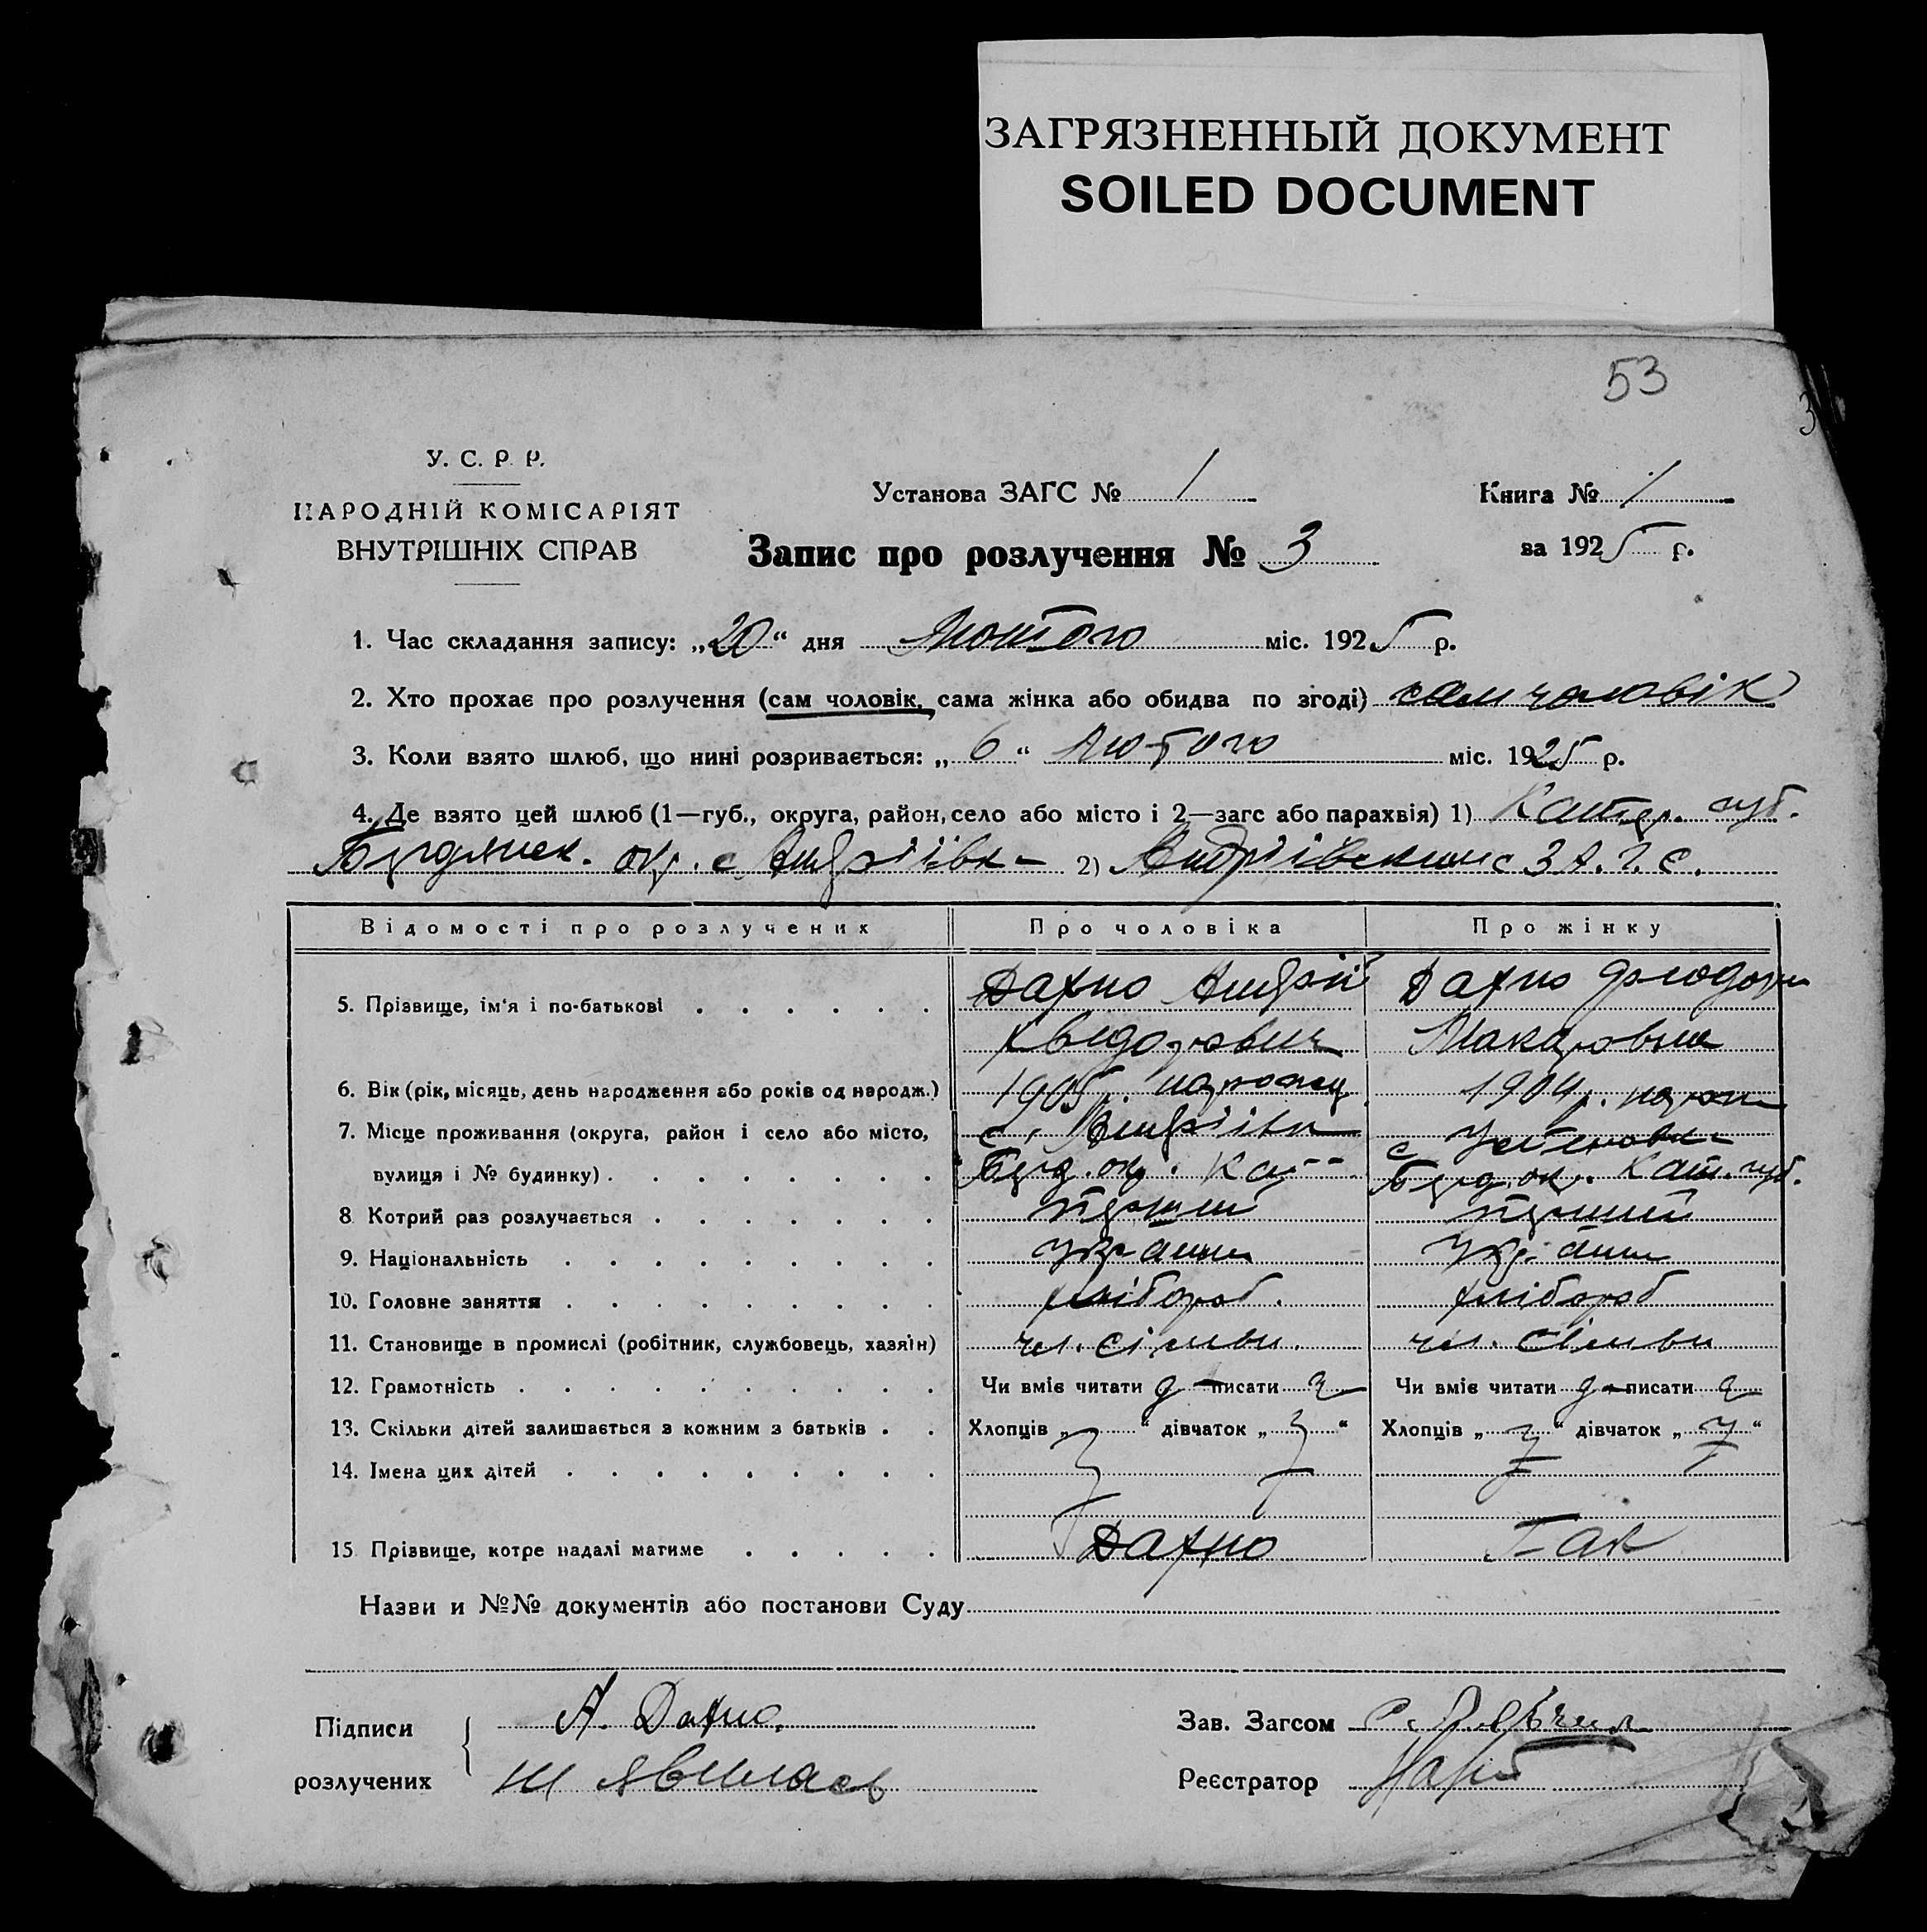 ЗАГРЯЗНЕННЫЙ ДОКУМЕНТ
SOILED DOCUMENT
53
3
У. С. Р. Р.
НАРОДНІЙ КОМІСАРІЯТ
ВНУТРІШНІХ СПРАВ
Установа ЗАГС № 1
Книга № 1
за 1925 р.
Запис про розлучення № 3
1. Час складання запису: „20“ дня Лютого міс. 1925 р.
2. Хто прохає про розлучення (сам чоловік, сама жінка або обидва по згоді) сам чоловік
3. Коли взято шлюб, що нині розривається: „6“ Лютого міс. 1925 р.
4. Де взято цей шлюб (1—губ., округа, район, село або місто і 2—загс або парахвія) 1) Катер. губ.
Бердянск. окр. с Андріївк- 2) ЗАГС.
Відомості про розлучених Про чоловіка Про жінку
5. Прізвище, ім'я і по-батькові . . . . . . Дахно Андрій Дахно
Хведорович Макаровна
6. Вік (рік, місяць, день народження або років од народж.) 1905 р. 1904 р.
7. Місце проживання (округа, район і село або місто, с. Андріївка с
вулиця і № будинку) . . . . . . . . Берд. окр. Кат-- Берд. ок. Кат. губ.
8 Котрий раз розлучається . . . . . . . перший перший
9. Національність . . . . . . . . . україн україн
10. Головне заняття . . . . . . . . . хлібороб. хлібороб
11. Становище в промислі (робітник, службовець, хазяїн) чл. сімьи. чл. сімьи
12. Грамотність . . . . . . . . . . Чи вміє читати писати Чи вміє читати писати
13. Скільки дітей залишається з кожним з батьків . . Хлопців „ “ дівчаток „ “ Хлопців „ “ дівчаток „ “
14. Імена цих дітей . . . . . . . . .
15 Прізвище, котре надалі матиме . . . . . Дахно Гак
Назви и №№ документів або постанови Суду
Підписи А. Дахно.
розлучених явилась
Зав. Загсом
Реєстратор